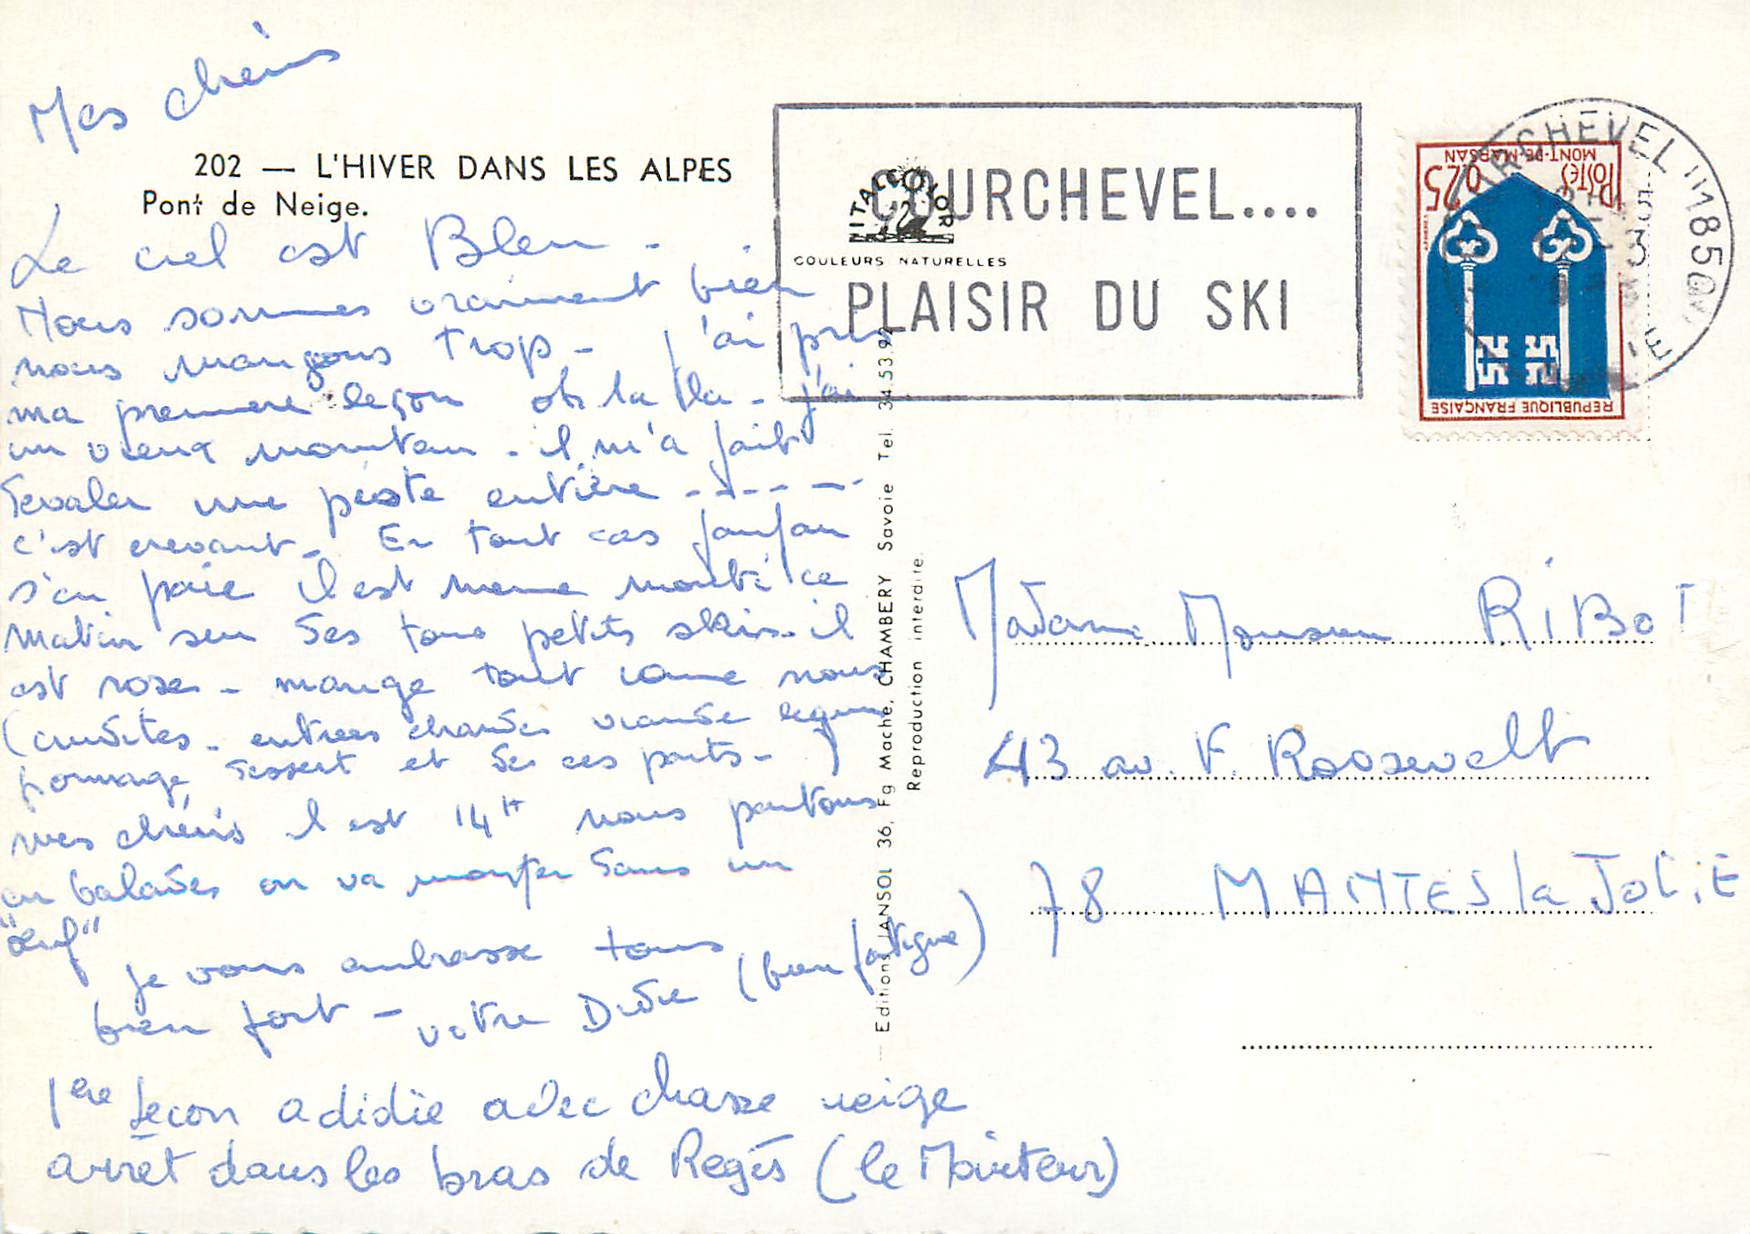 Mes chéris
202 — L'HIVER DANS LES ALPES
Pont de Neige.
Le ciel est Bleu -
Nous sommes vraiment bien
nous mangeons trop - j'ai pris
ma premiere leçon oh la la - j'ai
un vieux moniteur - il m'a fait
devaler une piste entière - - - - - -
c'est crevant - En tout cas fanfan
s'en paie il est meme monté ce
matin sur des tous petits skis. il
est rose - mange tout come nous
(crudites - entrees chaudes viande legume
fromage, dessert et de ces parts - )
mes chéris il est 14H nous partons
en balades on va monter dans un
"œuf"
je vous embrasse tous
bien fort - votre Didie (bien fatigue)
1ere Lecon a didie avec chasse neige
arret dans les bras de Regis (le Moniteur)
ITALCOLOR
COULEURS NATURELLES
COURCHEVEL....
PLAISIR DU SKI
COURCHEVEL "1850"
POSTES
0,25
MONT-DE-MARSAN
REPUBLIQUE FRANÇAISE
Editions JANSOL 36, Fg Mache, CHAMBERY Savoie Tel. 34.53.92
Reproduction interdite.
Madame Monsieur RiBoT
43 av. F. Roosevelt
78 MANTES la JoLiE